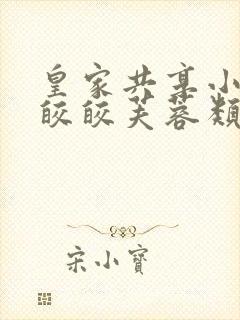 皇家共享小
皎皎芙蓉類
宋小寶